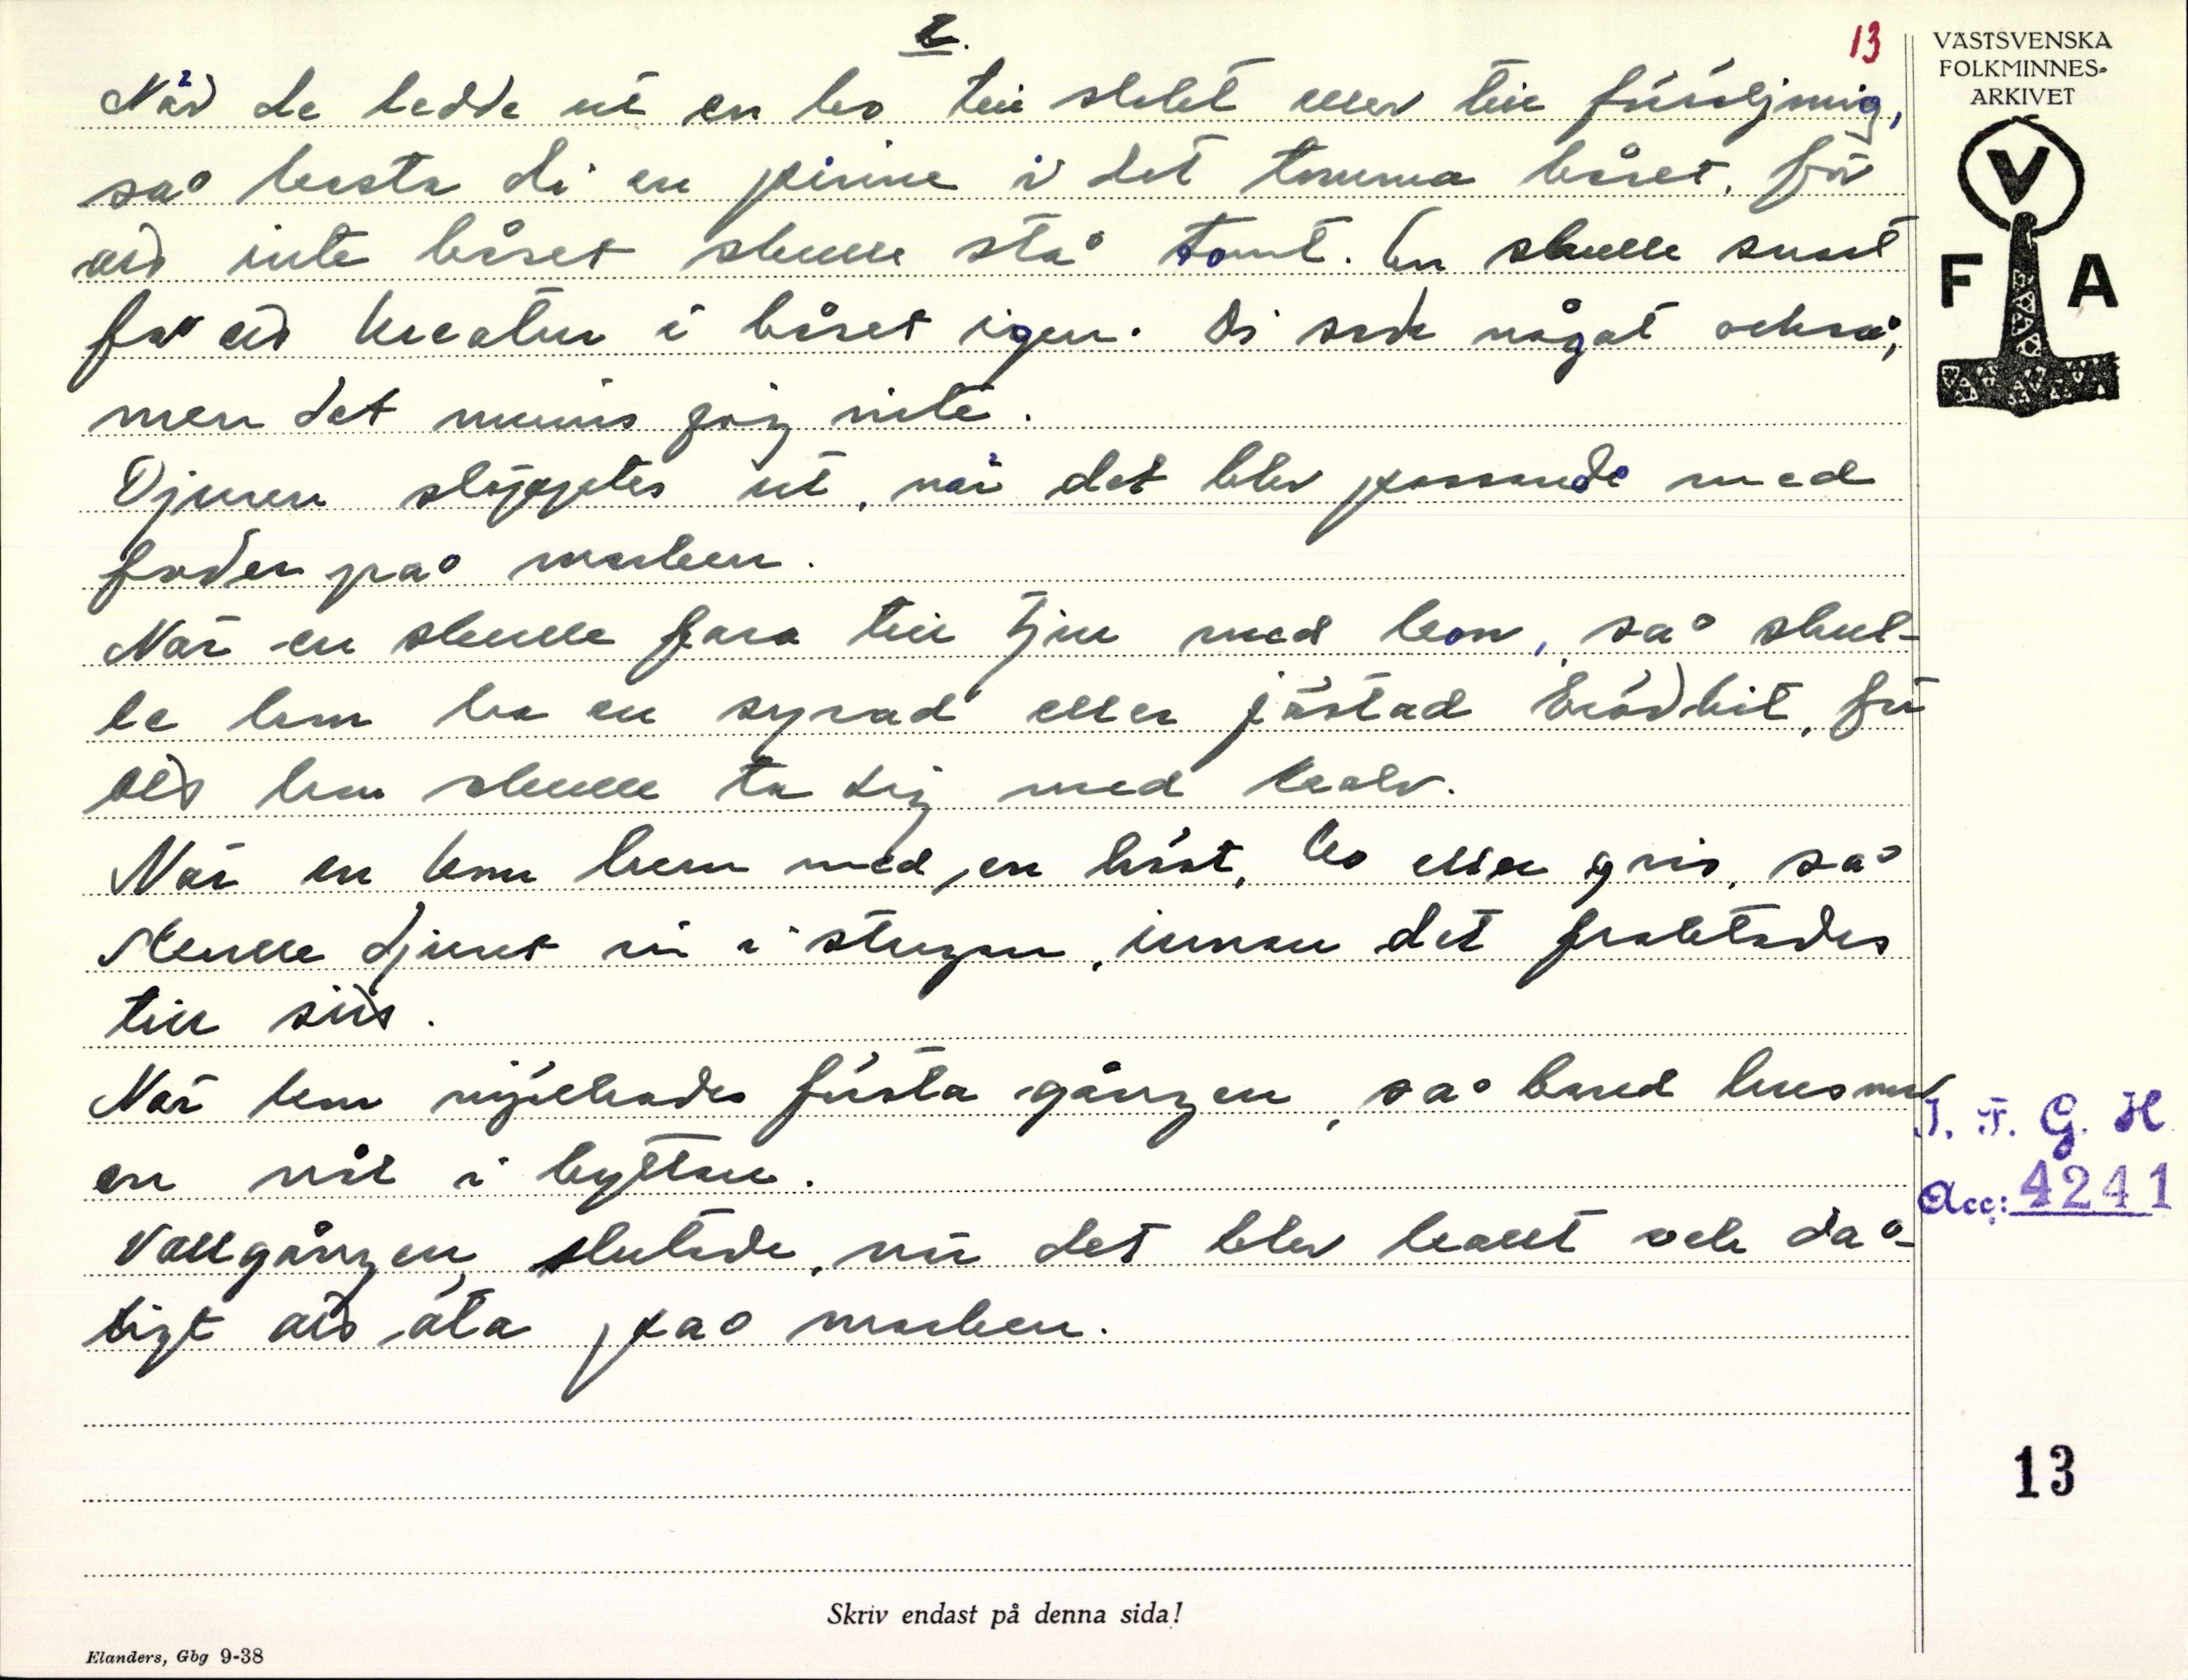 2.
13
När de ledde ut en ko till slakt eller till försäljning,
så kasta di en pinne i det tomma båset, för
att inte båset skulle stå tomt. En skulle snart
få ett kreatur i båset igen. Di sade något också,
men det minns jag inte.
Djuren släpptes ut, när det blev passande med
foder på marken.
När en skulle fara till tjur med kon, så skul-
le hon ha en syrad eller jästad brödbit, för
att hon skulle ta sig med kalv.
När en kom hem med en häst, ko eller gris, så
skulle djuret in i stugan, innan det fraktades
till sitt.
När hon mjölkades första gången, så hade husmor
en nål i byttan.
Vallgången slutade, när det blev kallt och då-
ligt att äta på marken.
VÄSTSVENSKA
FOLKMINNES-
ARKIVET
V
F A
I. F. G. H.
Acc: 4241
13
Skriv endast på denna sida!
Elanders, Gbg 9-38